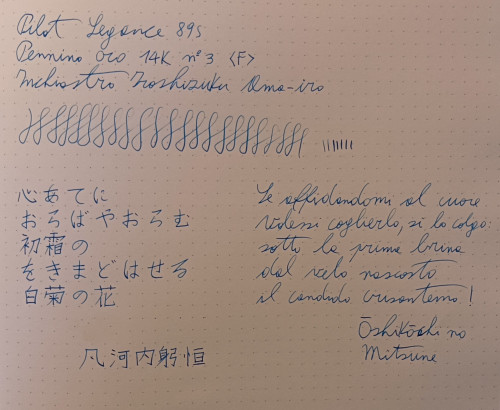 Pilot Legance 89s
Pennino oro 14K nº 3 <F>
Inchiostro Iroshizuku Ama-iro
心あてに
おらばやおらむ
初霜の
をきまどはせる
白菊の花
凡河内躬恒
Se affidandomi al cuore
volessi coglierlo, sì lo colgo:
sotto la prima brina
dal velo nascosto
il candido crisantemo!
Ōshikōchi no
Mitsune